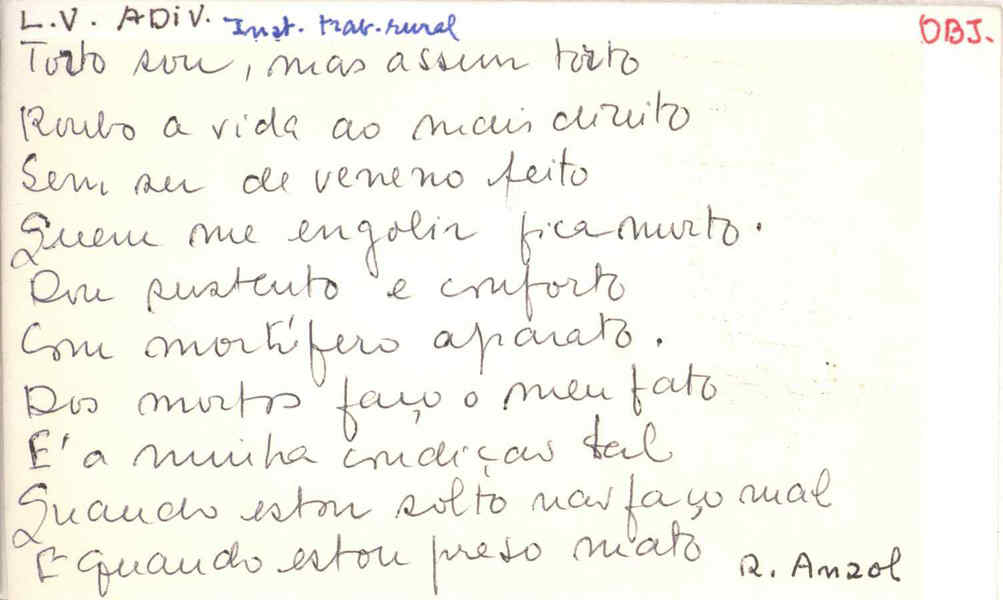 L.V. ADIV. Inst. trab. rural OBJ.
Torto sou, mas assim torto
Roubo a vida ao mais direito
Sem ser de veneno feito
Quem me engolir fica morto.
Dou sustento e conforto
Com mortífero aparato.
Dos mortos faço o meu fato
E' a minha condição tal
Quando estou solto não faço mal
E quando estou preso mato
R. Anzol